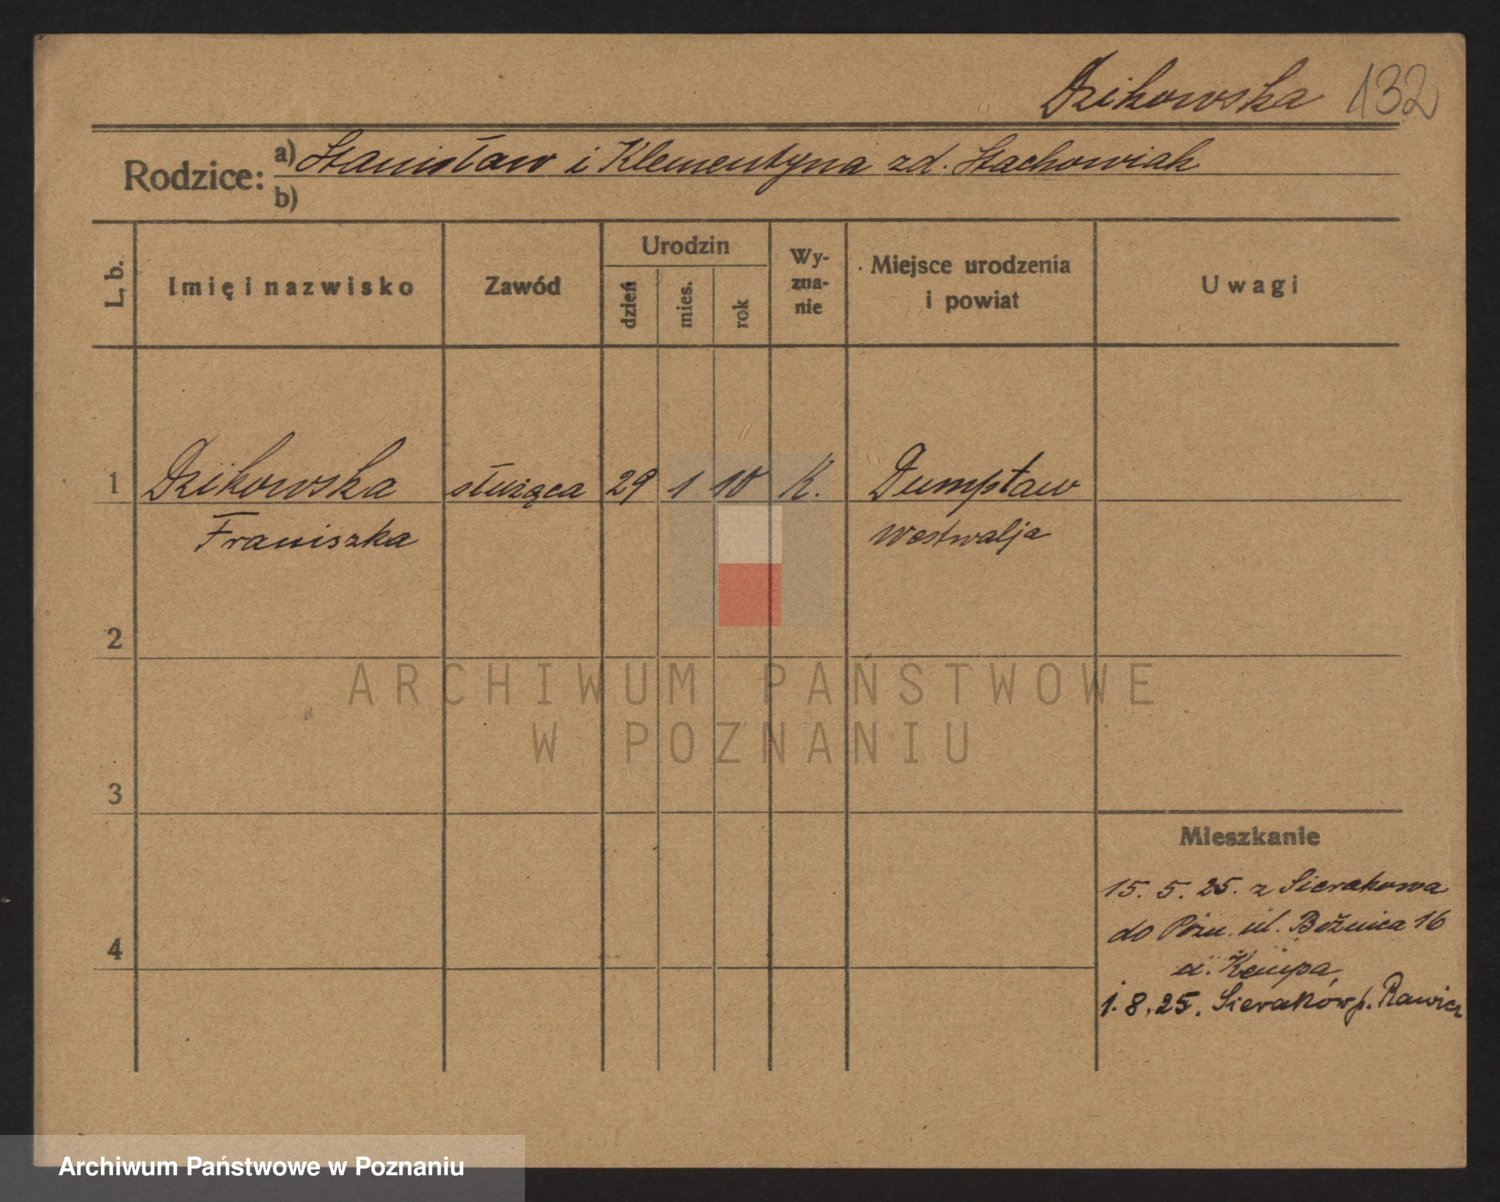 Dzikowska 132
Rodzice:
a) Stanisław i Klementyna zd. Stachowiak
b)
L. b.
Imię i nazwisko
Zawód
Urodzin
dzień
mies.
rok
Wy-
zna-
nie
Miejsce urodzenia
i powiat
Uwagi
1 Dzikowska służąca 29 1 10 K. Dumpław
Franiszka Westwalja
2
3
4
Mieszkanie
15. 5. 25. z Sierakowa
do Pozn. ul. Bożnica 16
u. Kempa,
1. 8. 25. Sieraków p. Rawicz
ARCHIWUM PAŃSTWOWE
W POZNANIU
Archiwum Państwowe w Poznaniu